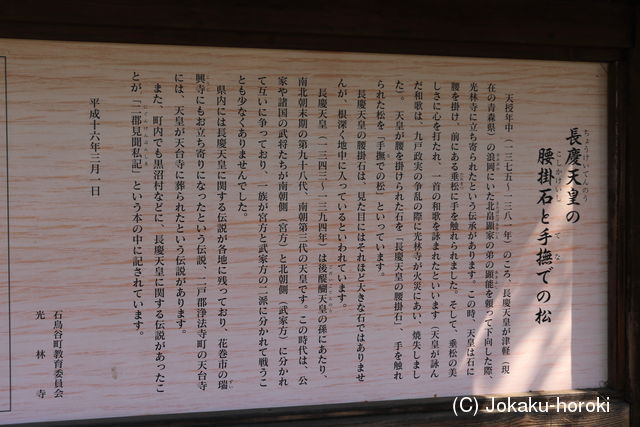 長慶天皇の
腰掛石と手撫での松
天授年中（一三七五～一三八一年）のころ、長慶天皇が津軽（現
在の青森県）の浪岡にいた北畠顕家の弟の顕能を頼って下向した際、
光林寺に立ち寄られたという伝承があります。この時、天皇は石に
腰を掛け、前にある垂松に手を触れられました。そして、垂松の美
しさに心を打たれ、一首の和歌を詠まれたといいます（天皇が詠ん
だ和歌は、九戸政実の争乱の際に光林寺が火災にあい、焼失しまし
た）。天皇が腰を掛けられた石を「長慶天皇の腰掛石」、手を触れ
られた松を「手撫での松」といっています。
長慶天皇の腰掛石は、見た目にはそれほど大きな石ではありませ
んが、根深く地中に入っているといわれています。
長慶天皇（一三四三～一三九四年）は後醍醐天皇の孫にあたり、
南北朝末期の第九十八代、南朝第三代の天皇です。この時代は、公
家や諸国の武将たちが南朝側（宮方）と北朝側（武家方）に分かれ
て互いに争っており、一族が宮方と武家方の二派に分かれて戦うこ
とも少なくありませんでした。
県内には長慶天皇に関する伝説が各地に残っており、花巻市の瑞
興寺にもお立ち寄りになったという伝説、二戸郡浄法寺町の天台寺
には、天皇が天台寺に葬られたという伝説があります。
また、町内でも黒沼村などに、長慶天皇に関する伝説があったこ
とが、「二郡見聞私記」という本の中に記されています。
平成十六年三月一日
石鳥谷町教育委員会
光林寺
(C) Jokaku-horoki